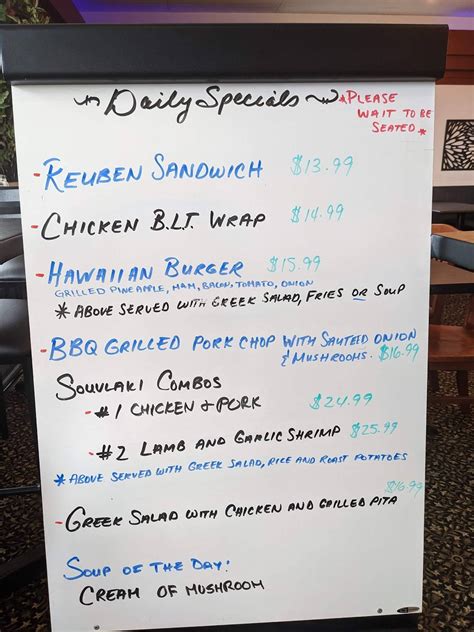 Daily Specials
*PLEASE
WAIT TO BE
SEATED*
- REUBEN SANDWICH $13.99
- CHICKEN B.L.T. WRAP $14.99
- HAWAIIAN BURGER $15.99
GRILLED PINEAPPLE, HAM, BACON, TOMATO, ONION
* ABOVE SERVED WITH GREEK SALAD, FRIES OR SOUP
- BBQ GRILLED PORK CHOP WITH SAUTEED ONION
& MUSHROOMS. $16.99
SOUVLAKI COMBOS
- #1 CHICKEN & PORK $24.99
- #2 LAMB AND GARLIC SHRIMP $25.99
* ABOVE SERVED WITH GREEK SALAD, RICE AND ROAST POTATOES
- GREEK SALAD WITH CHICKEN AND GRILLED PITA $16.99
SOUP OF THE DAY:
CREAM OF MUSHROOM